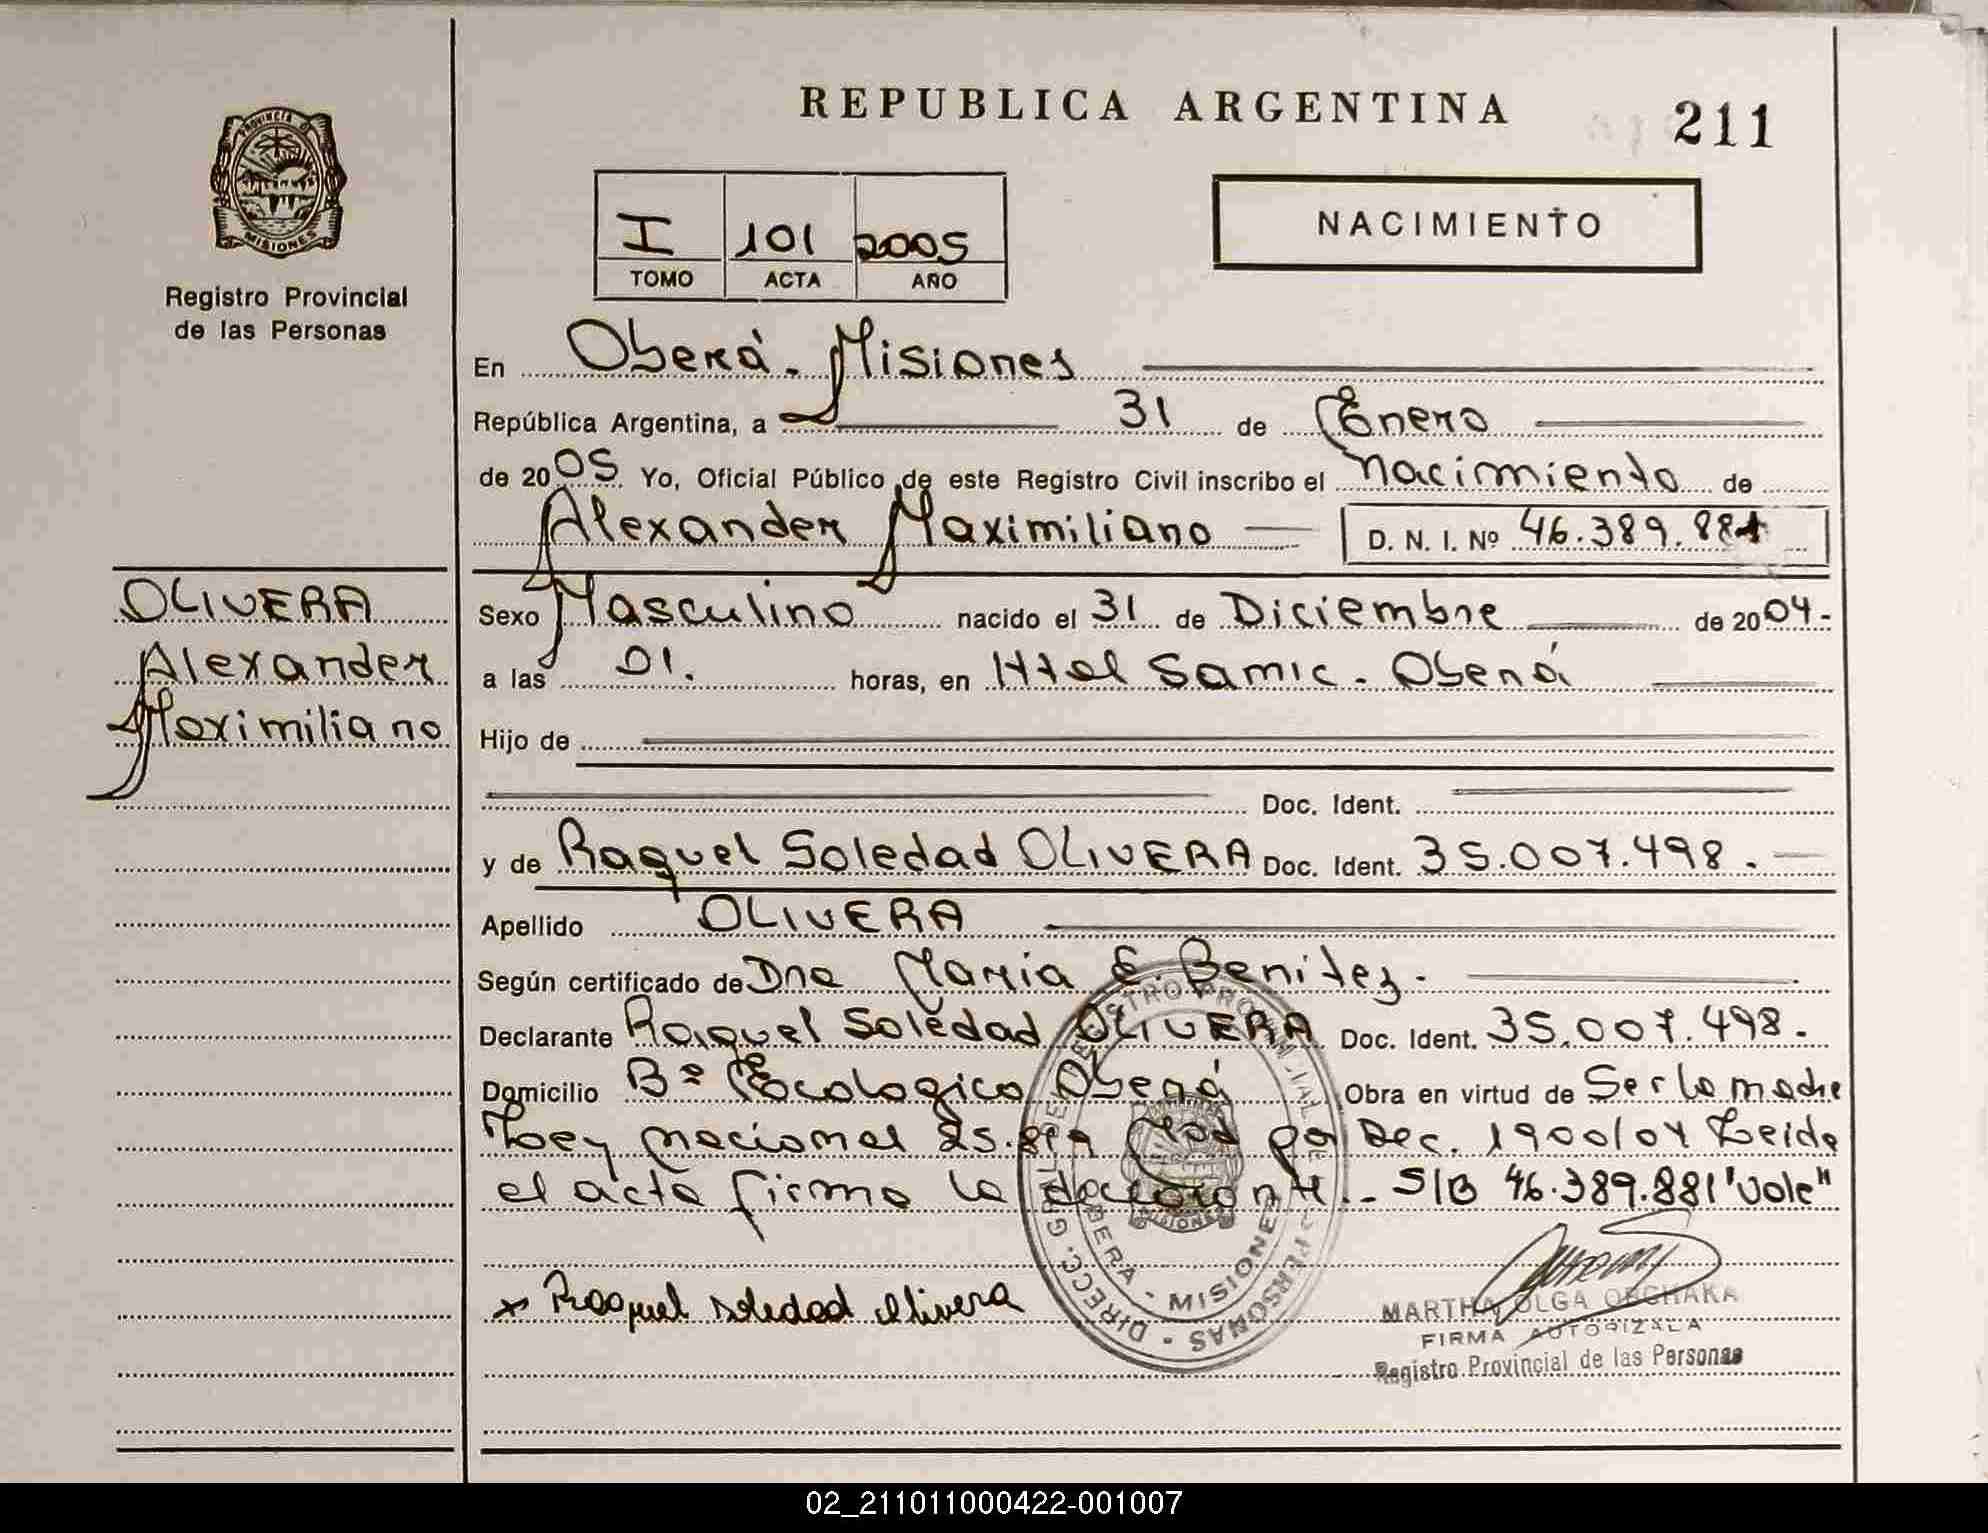 REPUBLICA ARGENTINA
211
PROVINCIA D
MISIONES
Registro Provincial
de las Personas
I 101 2005
TOMO ACTA AÑO
NACIMIENTO
En Oberá - Misiones
República Argentina, a 31 de Enero
de 2005 Yo, Oficial Público de este Registro Civil inscribo el nacimiento de
Alexander Maximiliano D. N. I. Nº 46.389.881
OLIVERA
Alexander
Maximiliano
Sexo Masculino nacido el 31 de Diciembre de 2004-
a las 01. horas, en Htal Samic - Oberá
Hijo de
Doc. Ident.
y de Raquel Soledad OLIVERA Doc. Ident. 35.007.498.
Apellido OLIVERA
Según certificado de Dra Maria E. Benitez.
Declarante Raquel Soledad OLIVERA Doc. Ident. 35.007.498.
Domicilio Bº Ecologico Oberá Obra en virtud de Ser la madre
Ley nacional 25.819 Mod por Dec. 1900/04 Leida
el acta firma la S/B 46.389.881 "Vale"
x Raquel Soledad Olivera
DIRECC. GRAL. DE REGISTRO PROVINCIAL DE LAS PERSONAS
OBERA - MISIONES
MISIONES
MARTHA OLGA
FIRMA AUTORIZADA
Registro Provincial de las Personas
02_211011000422-001007